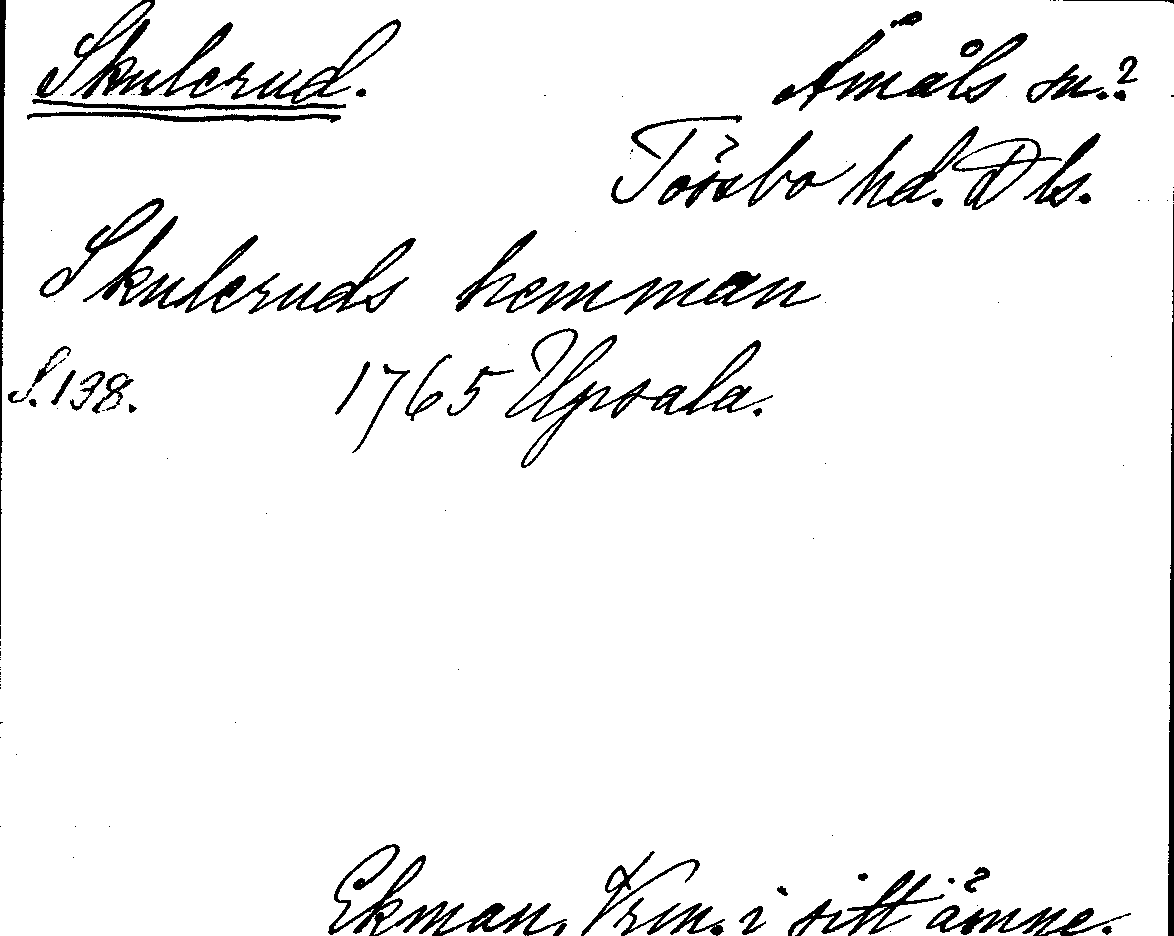 Skulerud.
Åmåls sn.?
Tössbo hd. Dls.
Skuleruds hemman
S. 138. 1765 Upsala.
Ekman, Vrm. i sitt ämne.